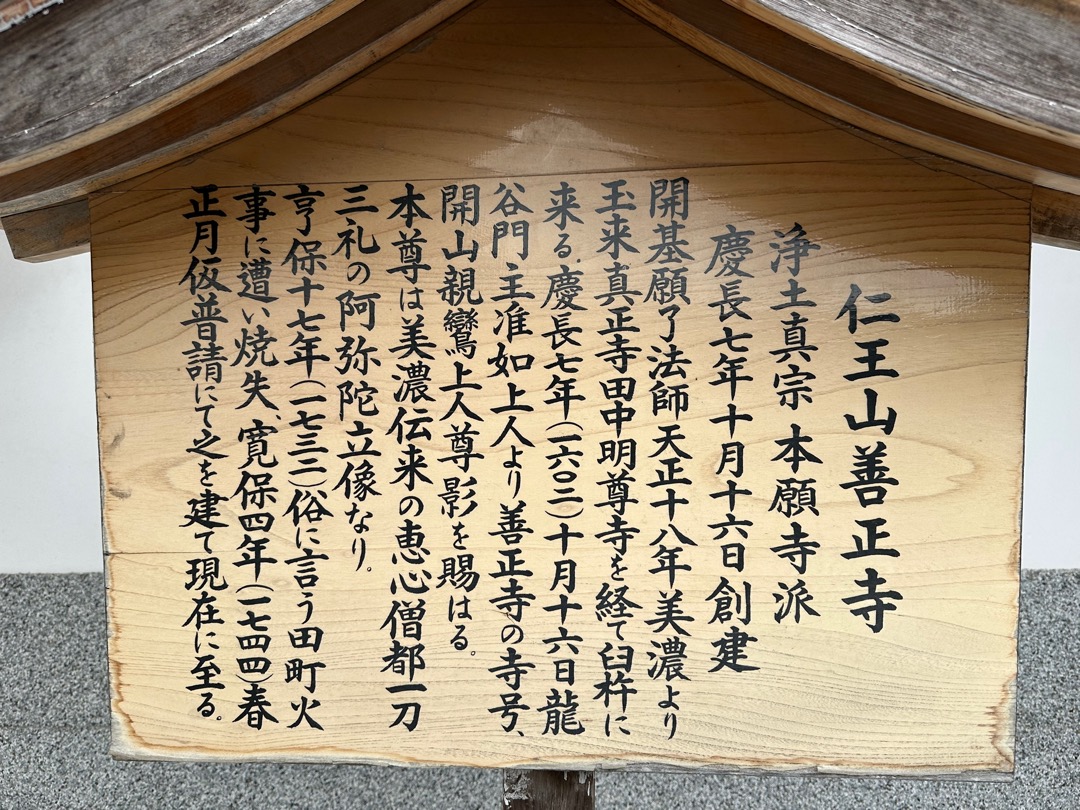 仁王山善正寺
浄土真宗 本願寺派
慶長七年十月十六日創建
開基願了法師天正十八年美濃より
玉来真正寺田中明尊寺を経て臼杵に
来る。慶長七年(一六〇二)十月十六日龍
谷門主准如上人より善正寺の寺号、
開山親鸞上人尊影を賜はる。
本尊は美濃伝来の恵心僧都一刀
三礼の阿弥陀立像なり。
亨保十七年(一七三二)俗に言う田町火
事に遭い焼失、寛保四年(一七四四)春
正月仮普請にて之を建て現在に至る。